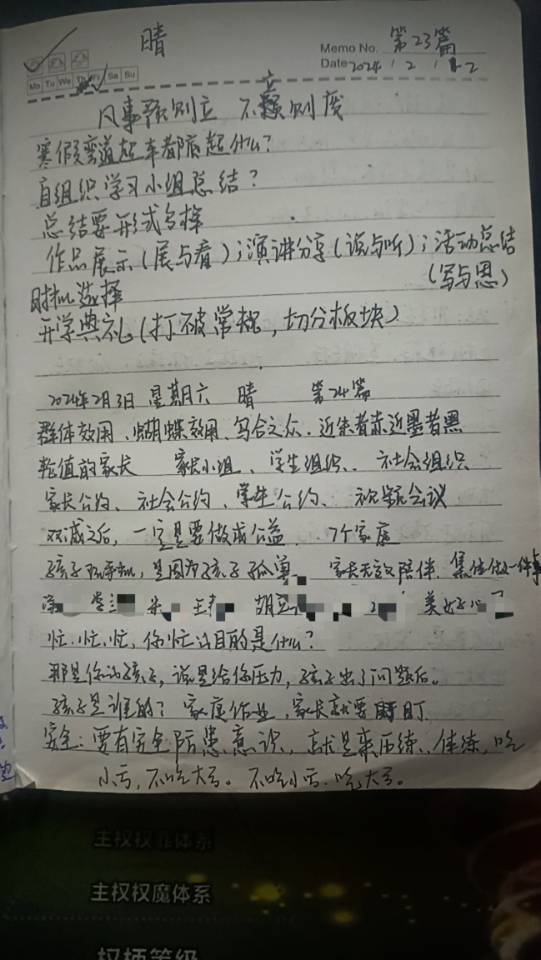 晴
Memo No. 第23篇
Mo Tu We Th Fr Sa Su
Date 2024 / 2 / 2
凡事预则立 不预则废
立
寒假弯道起车都应起什么？
自组织学习小组总结？
总结要形式多样
作品展示（展与看）；演讲分享（说与听）；活动总结
（写与思）
时机选择
开学典礼（打破常规，切分板块）
2024年2月3日 星期六 晴 第24篇
群体效用、蝴蝶效用、乌合之众、近朱者赤近墨者黑
轮值的家长 家长小组、学生组织、社会组织
家长公约、社会公约、学生公约、视频会议
双减之后，一定是要做成公益 7个家庭
孩子玩手机，是因为孩子孤单。家长无效陪伴 集体做一件事
忙、忙、忙，你忙的目的是什么？
那是你的孩子，说是给你压力，孩子出了问题后。
孩子是谁的？家庭作业，家长就要盯
安全：要有安全防患意识，就是来历练、体练，吃
小亏，不吃大亏。不吃小亏，吃大亏。
主权权
体系
主权权魔体系
权柄等级